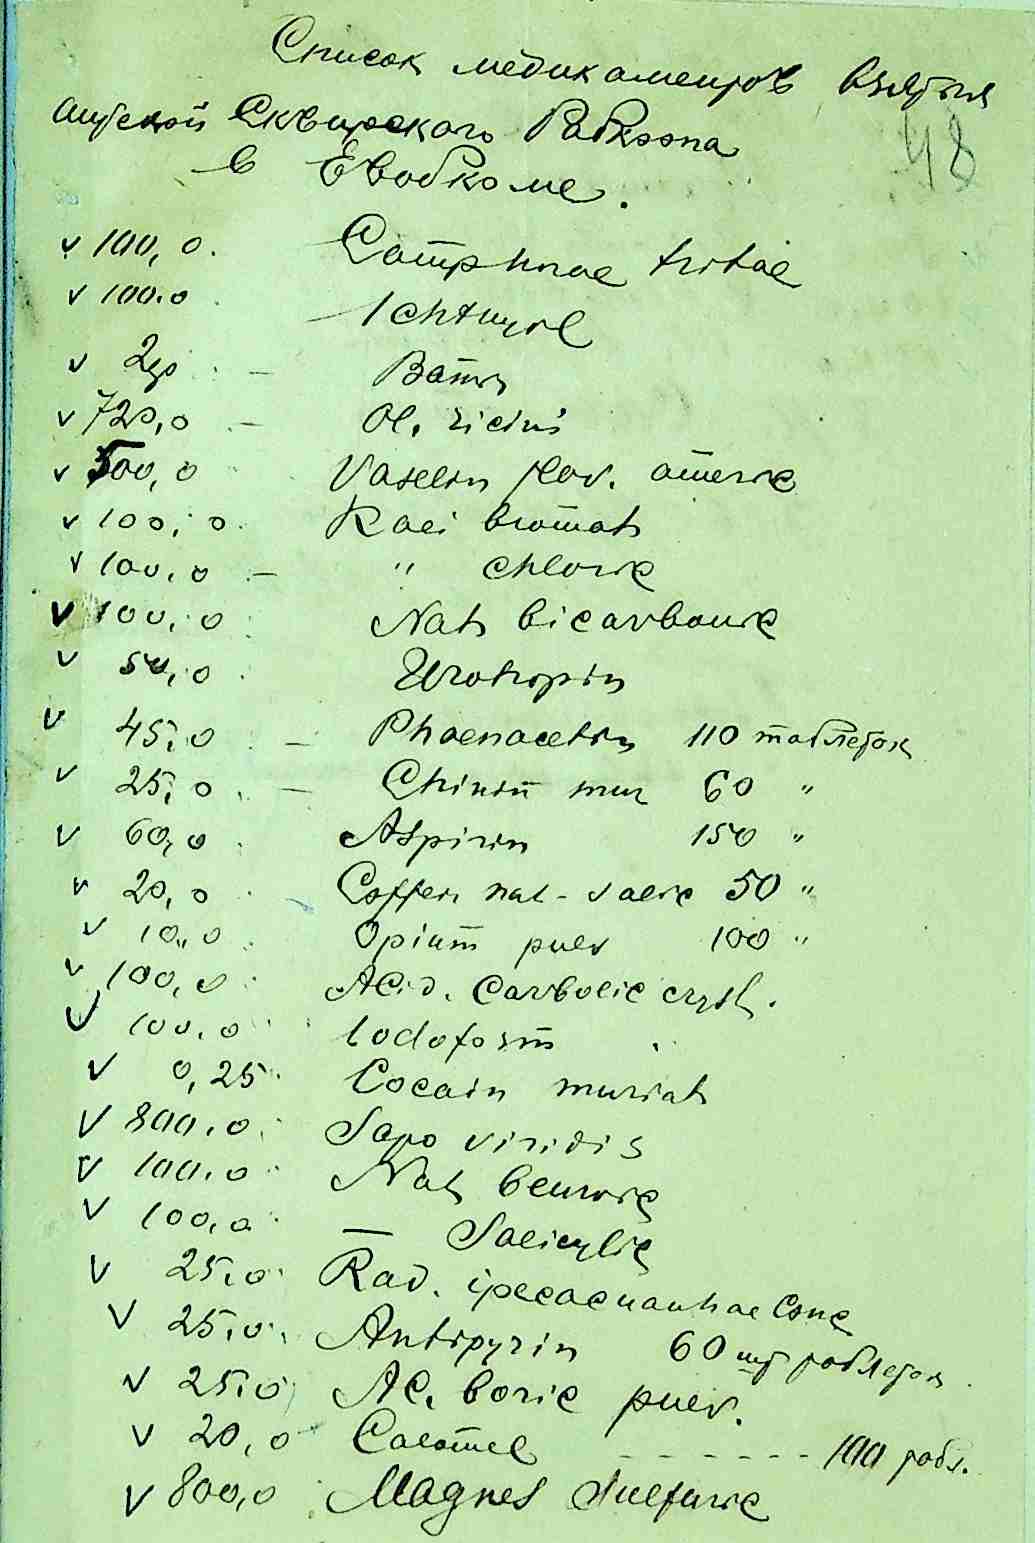 Список медикаментов взятых
аптекой Сквирского Райкоопа
48
в Евобкоме.
v 100,0. Camphorae tritae
v 100.0 Ichtuyol
v 2 – Вата
v 720,0 – Ol. ricini
v 500,0 Vaselin flav. americ
v 100,0. Kali bromat
v 100,0 – " chloric
v 100,0 Nat bicarbonic
v 50,0 Urotropin
v 45,0 – Phaenacetin 110 таблеток
v 25,0 – Chinin mur 60 "
v 60,0 Aspirin 150 "
v 20,0 Coffein nat-salic 50 "
v 10,0 Opium pulv 100 "
v 100,0 Acid. carbolic cryst.
v 100,0 Iodoform
v 0,25 Cocain muriat
v 800,0 Sapo viridis
v 100,0 Nat benzoic
v 100,0 — Salicylic
v 25,0 Rad. ipecacuanhae Conc
v 25,0. Antipyrin 60 шт таблеток
v 25,0 Ac. boric pulv.
v 20,0 Calomel - - - - - - - 100 табл.
v 800,0 Magnes sulfuric